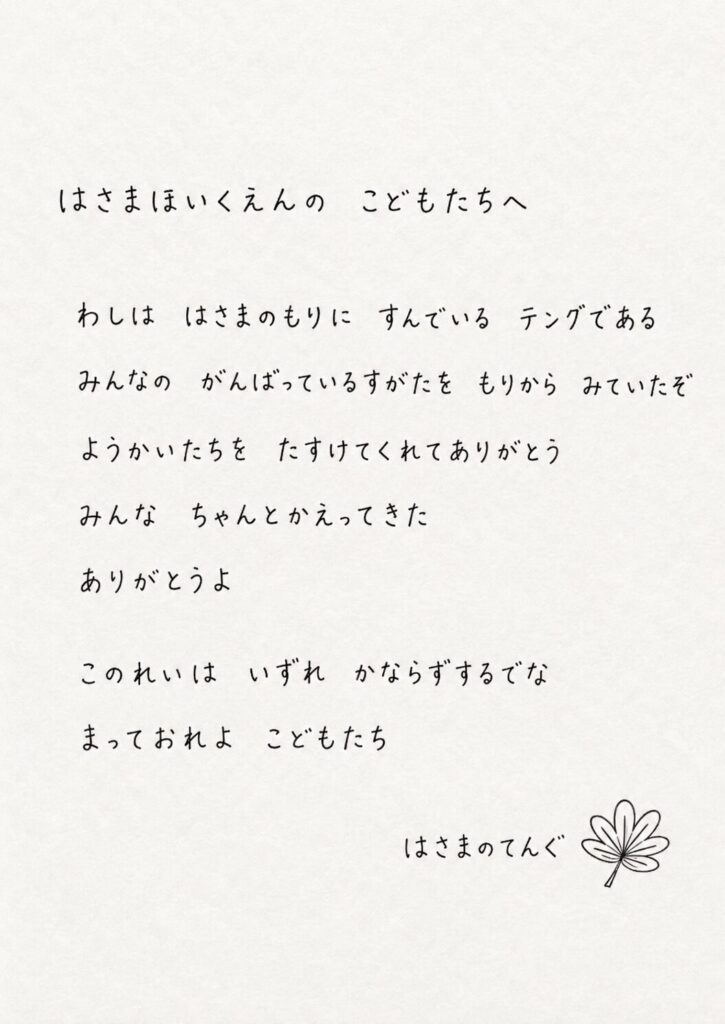 はさまほいくえんの　こどもたちへ
わしは　はさまのもりに　すんでいる　テングである
みんなの　がんばっているすがたを　もりから　みていたぞ
ようかいたちを　たすけてくれてありがとう
みんな　ちゃんとかえってきた
ありがとうよ
このれいは　いずれ　かならずするでな
まっておれよ　こどもたち
はさまのてんぐ